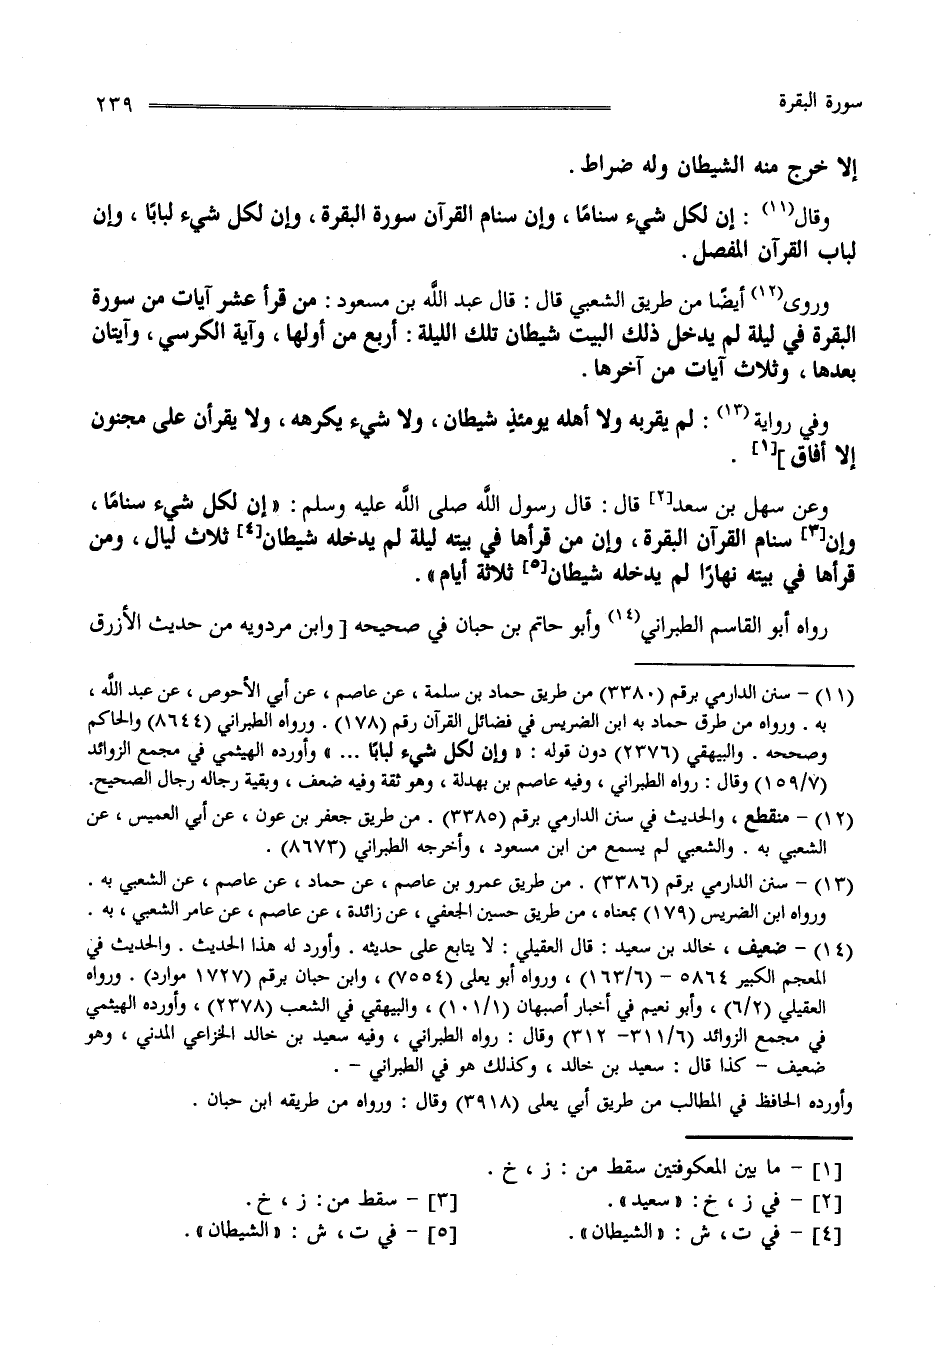 سورة البقرة ٢٣٩
إلا خرج منه الشيطان وله ضراط .
وقال(١١) : إن لكل شيء سنامًا ، وإن سنام القرآن سورة البقرة ، وإن لكل شيء لبابًا ، وإن
لباب القرآن المفصل .
وروى(١٢) أيضًا من طريق الشعبي قال : قال عبد اللَّه بن مسعود : من قرأ عشر آيات من سورة
البقرة في ليلة لم يدخل ذلك البيت شيطان تلك الليلة : أربع من أولها ، وآية الكرسي ، وآيتان
بعدها ، وثلاث آيات من آخرها .
وفي رواية(١٣) : لم يقربه ولا أهله يومئذٍ شيطان ، ولا شيء يكرهه ، ولا يقرأن على مجنون
إلا أفاق ][١] .
وعن سهل بن سعد[٢] قال : قال رسول اللَّه صلى اللَّه عليه وسلم : « إن لكل شيء سنامًا ،
وإن[٣] سنام القرآن البقرة ، وإن من قرأها في بيته ليلة لم يدخله شيطان[٤] ثلاث ليال ، ومن
قرأها في بيته نهارًا لم يدخله شيطان[٥] ثلاثة أيام» .
رواه أبو القاسم الطبراني(١٤) وأبو حاتم بن حبان في صحيحه [ وابن مردويه من حديث الأزرق
(١١) – سنن الدارمي برقم (٣٣٨٠) من طريق حماد بن سلمة ، عن عاصم ، عن أبي الأحوص ، عن عبد اللَّه ،
به . ورواه من طرق حماد به ابن الضريس في فضائل القرآن رقم (١٧٨) . ورواه الطبراني (٨٦٤٤) والحاكم
وصححه . والبيهقي (٢٣٧٦) دون قوله : « وإن لكل شيء لبابًا ... » وأورده الهيثمي في مجمع الزوائد
(١٥٩/٧) وقال : رواه الطبراني ، وفيه عاصم بن بهدلة ، وهو ثقة وفيه ضعف ، وبقية رجاله رجال الصحيح.
(١٢) – منقطع ، والحديث في سنن الدارمي برقم (٣٣٨٥) . من طريق جعفر بن عون ، عن أبي العميس ، عن
الشعبي به . والشعبي لم يسمع من ابن مسعود ، وأخرجه الطبراني (٨٦٧٣) .
(١٣) – سنن الدارمي برقم (٣٣٨٦) . من طريق عمرو بن عاصم ، عن حماد ، عن عاصم ، عن الشعبي به .
ورواه ابن الضريس (١٧٩) بمعناه ، من طريق حسين الجعفي ، عن زائدة ، عن عاصم ، عن عامر الشعبي ، به .
(١٤) – ضعيف ، خالد بن سعيد : قال العقيلي : لا يتابع على حديثه . وأورد له هذا الحديث . والحديث في
المعجم الكبير ٥٨٦٤ – (١٦٣/٦) ، ورواه أبو يعلى (٧٥٥٤) ، وابن حبان برقم (١٧٢٧ موارد) . ورواه
العقيلي (٦/٢) ، وأبو نعيم في أخبار أصبهان (١٠١/١) ، والبيهقي في الشعب (٢٣٧٨) ، وأورده الهيثمي
في مجمع الزوائد (٣١١/٦– ٣١٢) وقال : رواه الطبراني ، وفيه سعيد بن خالد الخزاعي المدني ، وهو
ضعيف – كذا قال : سعيد بن خالد ، وكذلك هو في الطبراني – .
وأورده الحافظ في المطالب من طريق أبي يعلى (٣٩١٨) وقال : ورواه من طريقه ابن حبان .
[١] – ما بين المعكوفتين سقط من : ز ، خ .
[٢] – في ز ، خ : «سعيد» . [٣] – سقط من : ز ، خ .
[٤] – في ت ، ش : « الشيطان» . [٥] – في ت ، ش : « الشيطان» .